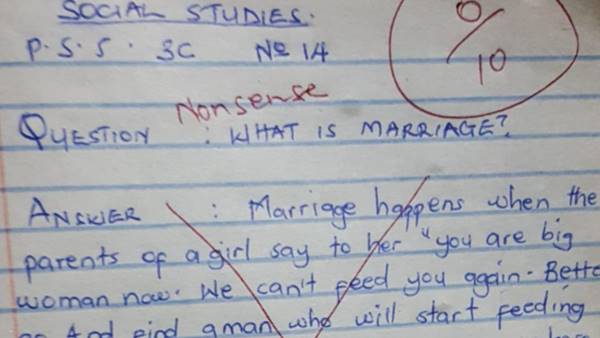 SOCIAL STUDIES.
P.S.S. 3C No 14
0/10
Nonsense
QUESTION : WHAT IS MARRIAGE?
ANSWER : Marriage happens when the
parents of a girl say to her "you are big
woman now. We can't feed you again. Bette
And find a man who will start feeding